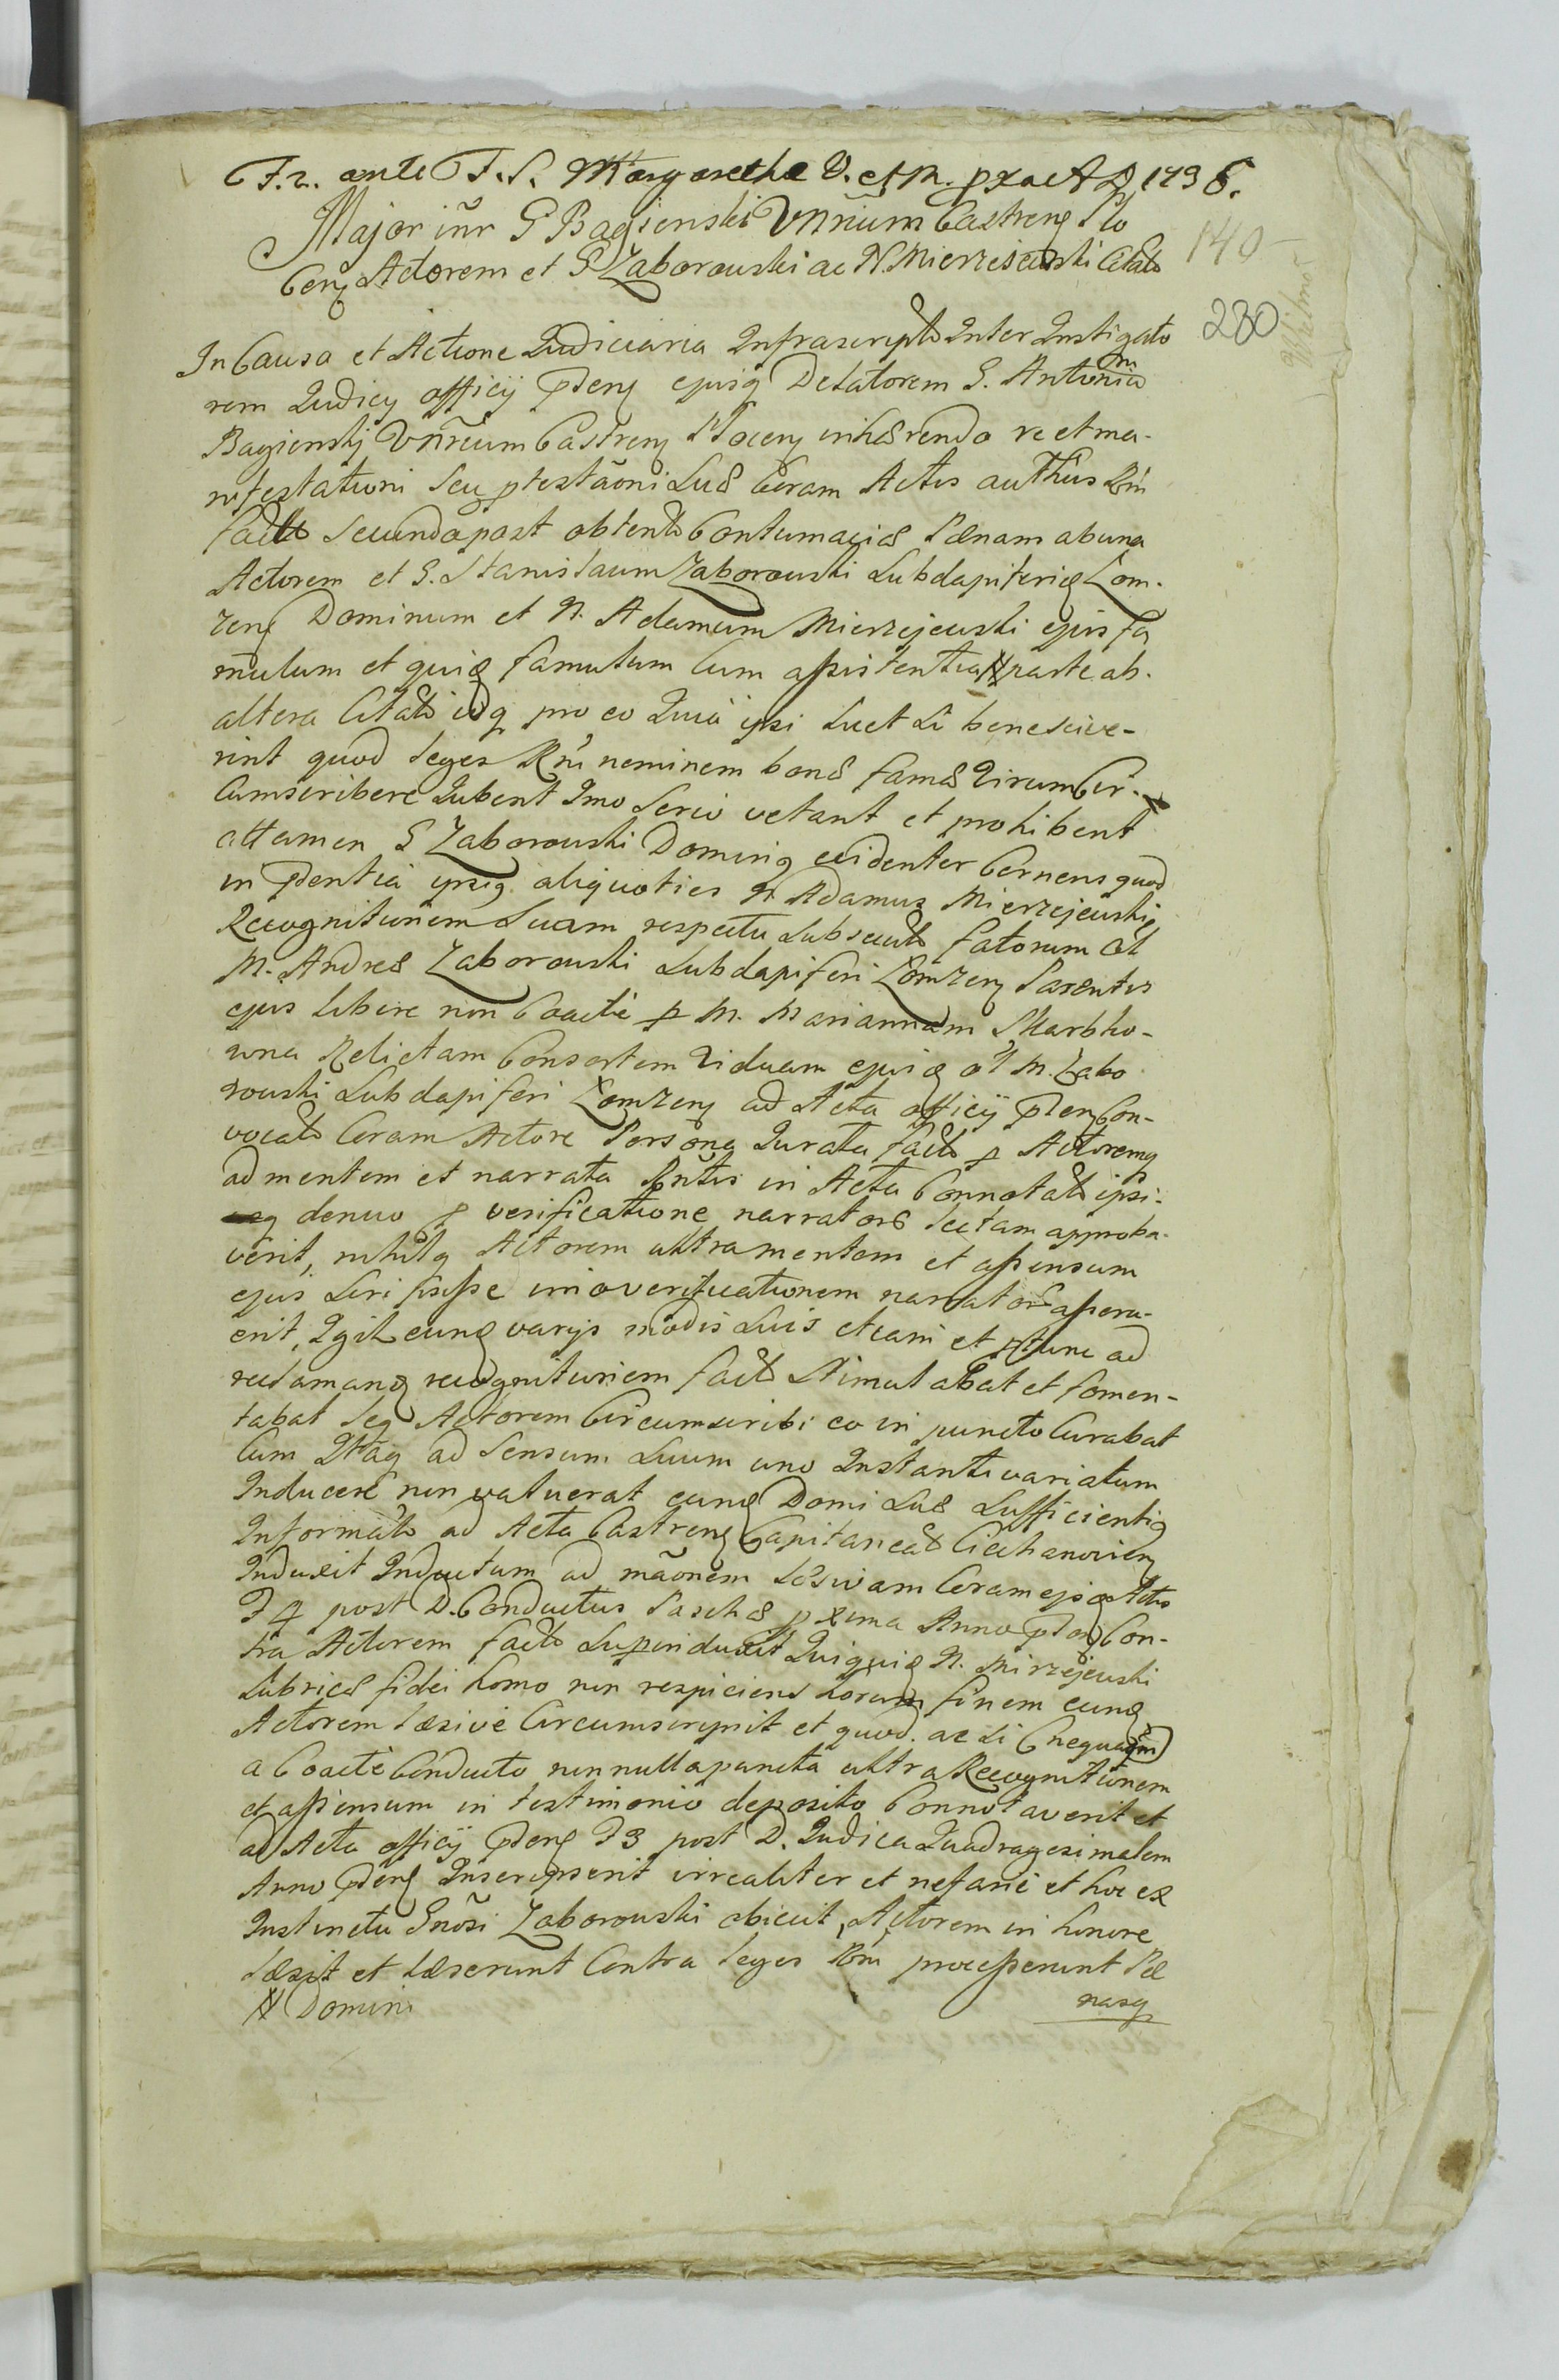 F. 2. ante F. S. Margarethæ V. et M. pxa A D 1736.
Major inr G Bagienski Vnrium Castreng Plo
ceng Actorem et G Zaborowski ac N. Mierzejewski Citatos
140
280
In Causa et Actione Judiciaria Infrascripta Inter Instigato
rem Judicy officij pteng ejusq Delatorem G. Antonium
Bagienskj Vnrium Castreng Ploceng inhærendo re et ma-
nifestationi seu ptestaoni suæ Coram Actis authcis Rni
factæ secunda post obtentæ Contumaciæ Pænam ab una
Actorem et G. Stanislaum Zaborowski Subdapiferiq Lom-
zeng Dominum et N. Adamum Mierzejewski ejus fa
mulum et quiq famulum Cum assistentia # parte ab-
altera Citatos idq pro eo Quia ipsi licet Li bene scive-
rint quod leges Rni neminem bonæ famæ Virum Cir-
Cumscribere Jubent Imo serio vetant et prohibent
attamen G Zaborowski Dominq evidenter Cernens quod
in ptentia ipsiq aliquoties N. Adamus Mierzejewskiq
Recognitionem suam respectu subsecuto fatorum ol
M. Andreæ Zaborowski Subdapiferi Lomzeng Parentis
ejus libere non Coacte p M. Mariannam Skarbko-
wna Relictam Consortem Viduam ejusq ol M. Zabo
rowski Subdapiferi Lomzeng ad Acta officij pteng Con-
vocato Coram Actore Persona Jurata facto p Actoremq
ad mentem et narrata Rntis in Acta Connotato ipsi-
denuo p verificatione narratoræ lectam approba-
verit, nihilq Actorem ultra mentem et assensum
ejus scripsisse imo verificationem narratoræ asseru-
erit, Igit eunq varijs modis suis etiam et ptunc ad
reclamang recognitionem facto stimulabat et fomen-
tabat seq Actorem Circumscribi eo in puncto Curabat
Cum Itaq ad sensum suum uno Instanti variatum
Inducere non valuerat eunq Domi suæ sufficientiq
Informato ad Acta Castreng Capitaneato Ciechanovieng
Induxit Inductum ad maonem læsivam Coram ejsq Actis
F 4 post D. Conductus Paschæ pxima Anno pteng Con-
tra Actorem facto superinduxit Quiquiq N. Mirzejewski
Lubricæ fidei homo non respiciens horum finem eunq
Actorem læsive Circumscripsit et quod ac si (nequaqm)
a Coacte Conducto nonnulla puncta ultra Recognitionem
et assensum in testimonio deposito Connotaverit et
ad Acta officij pteng F 3 post D. Judica Quadragesimalem
Anno pteng Inscripserit irrealiter et nefarie et hoc ex
Instinctu Gnosi Zaborowski objecit, Actorem in honore
læsit et læserunt Contra leges Rni processerunt Pæ
# Domini
nasq